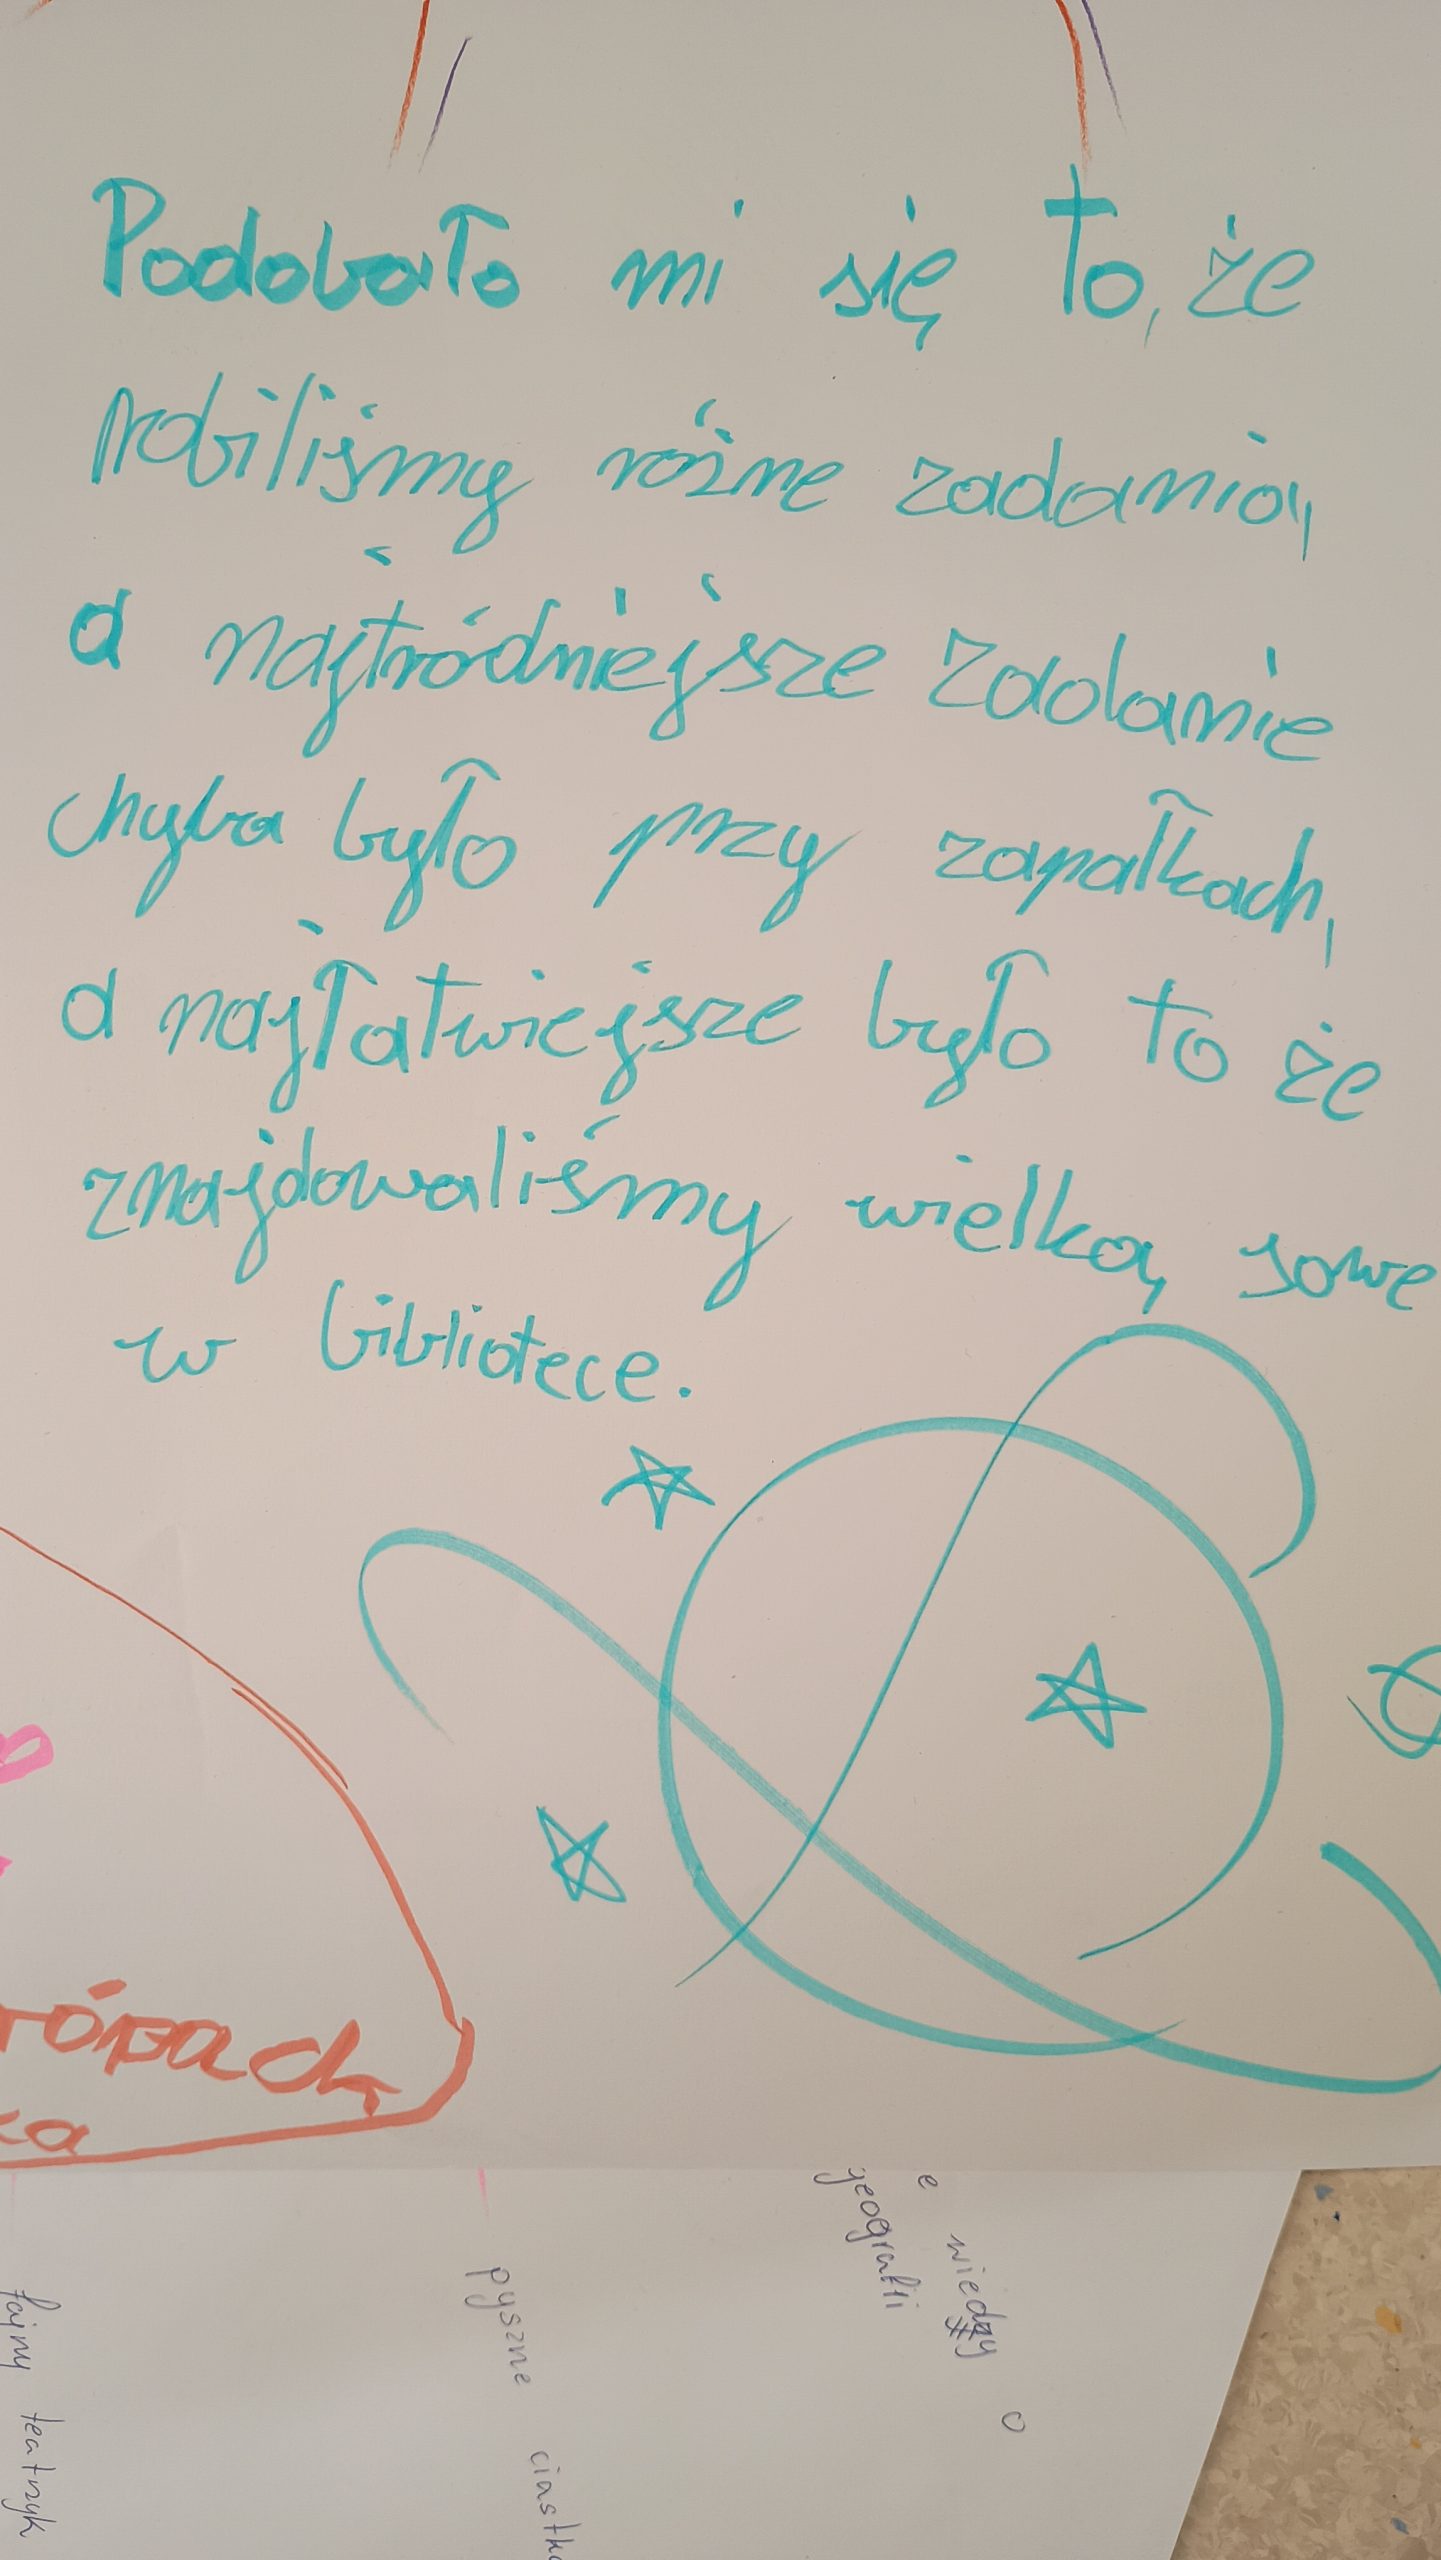 Podobało mi się to, że
robiliśmy różne zadania,
a najtródniejsze zadanie
chyba było przy zapałkach,
a najłatwiejsze było to że
znajdowaliśmy wielką sowę
w bibliotece.
geografii
wiedzy
o
pyszne
fajny teatrzyk